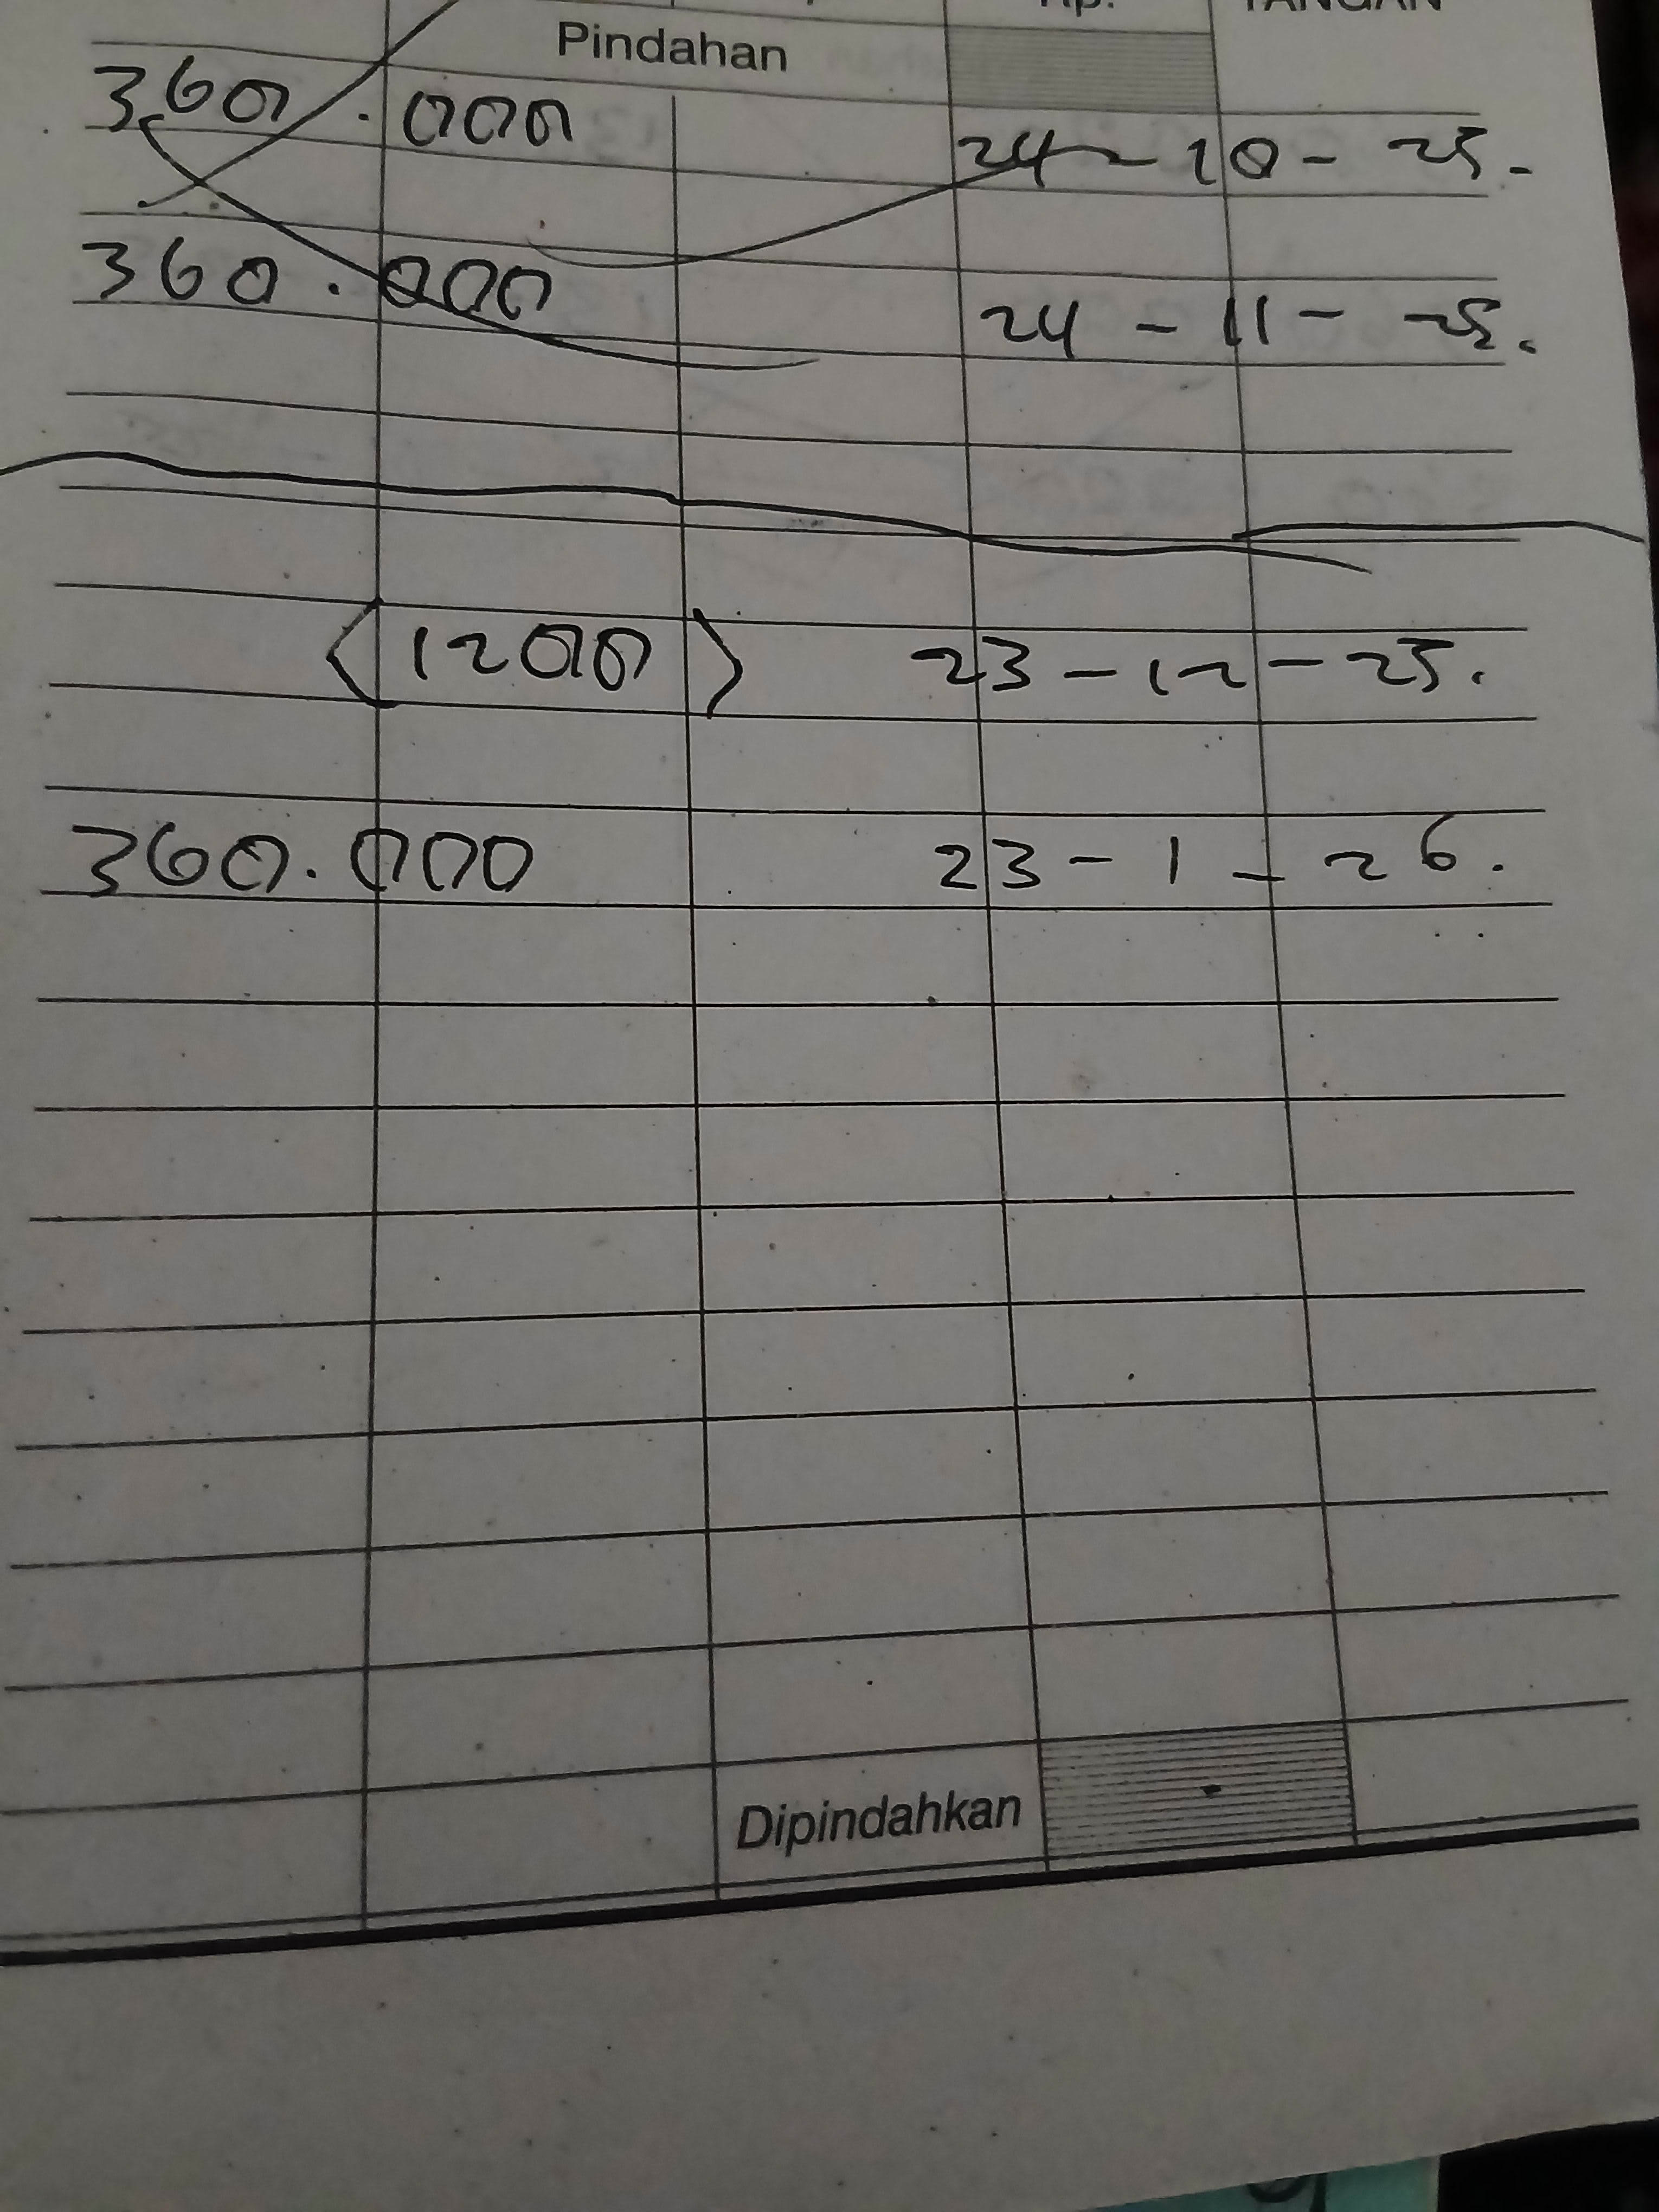 Rp. TANGAN
Pindahan
360.000 24-10-25.
360.000 24-11-25.
(1200) 23-12-25.
360.000 23-1-26.
Dipindahkan